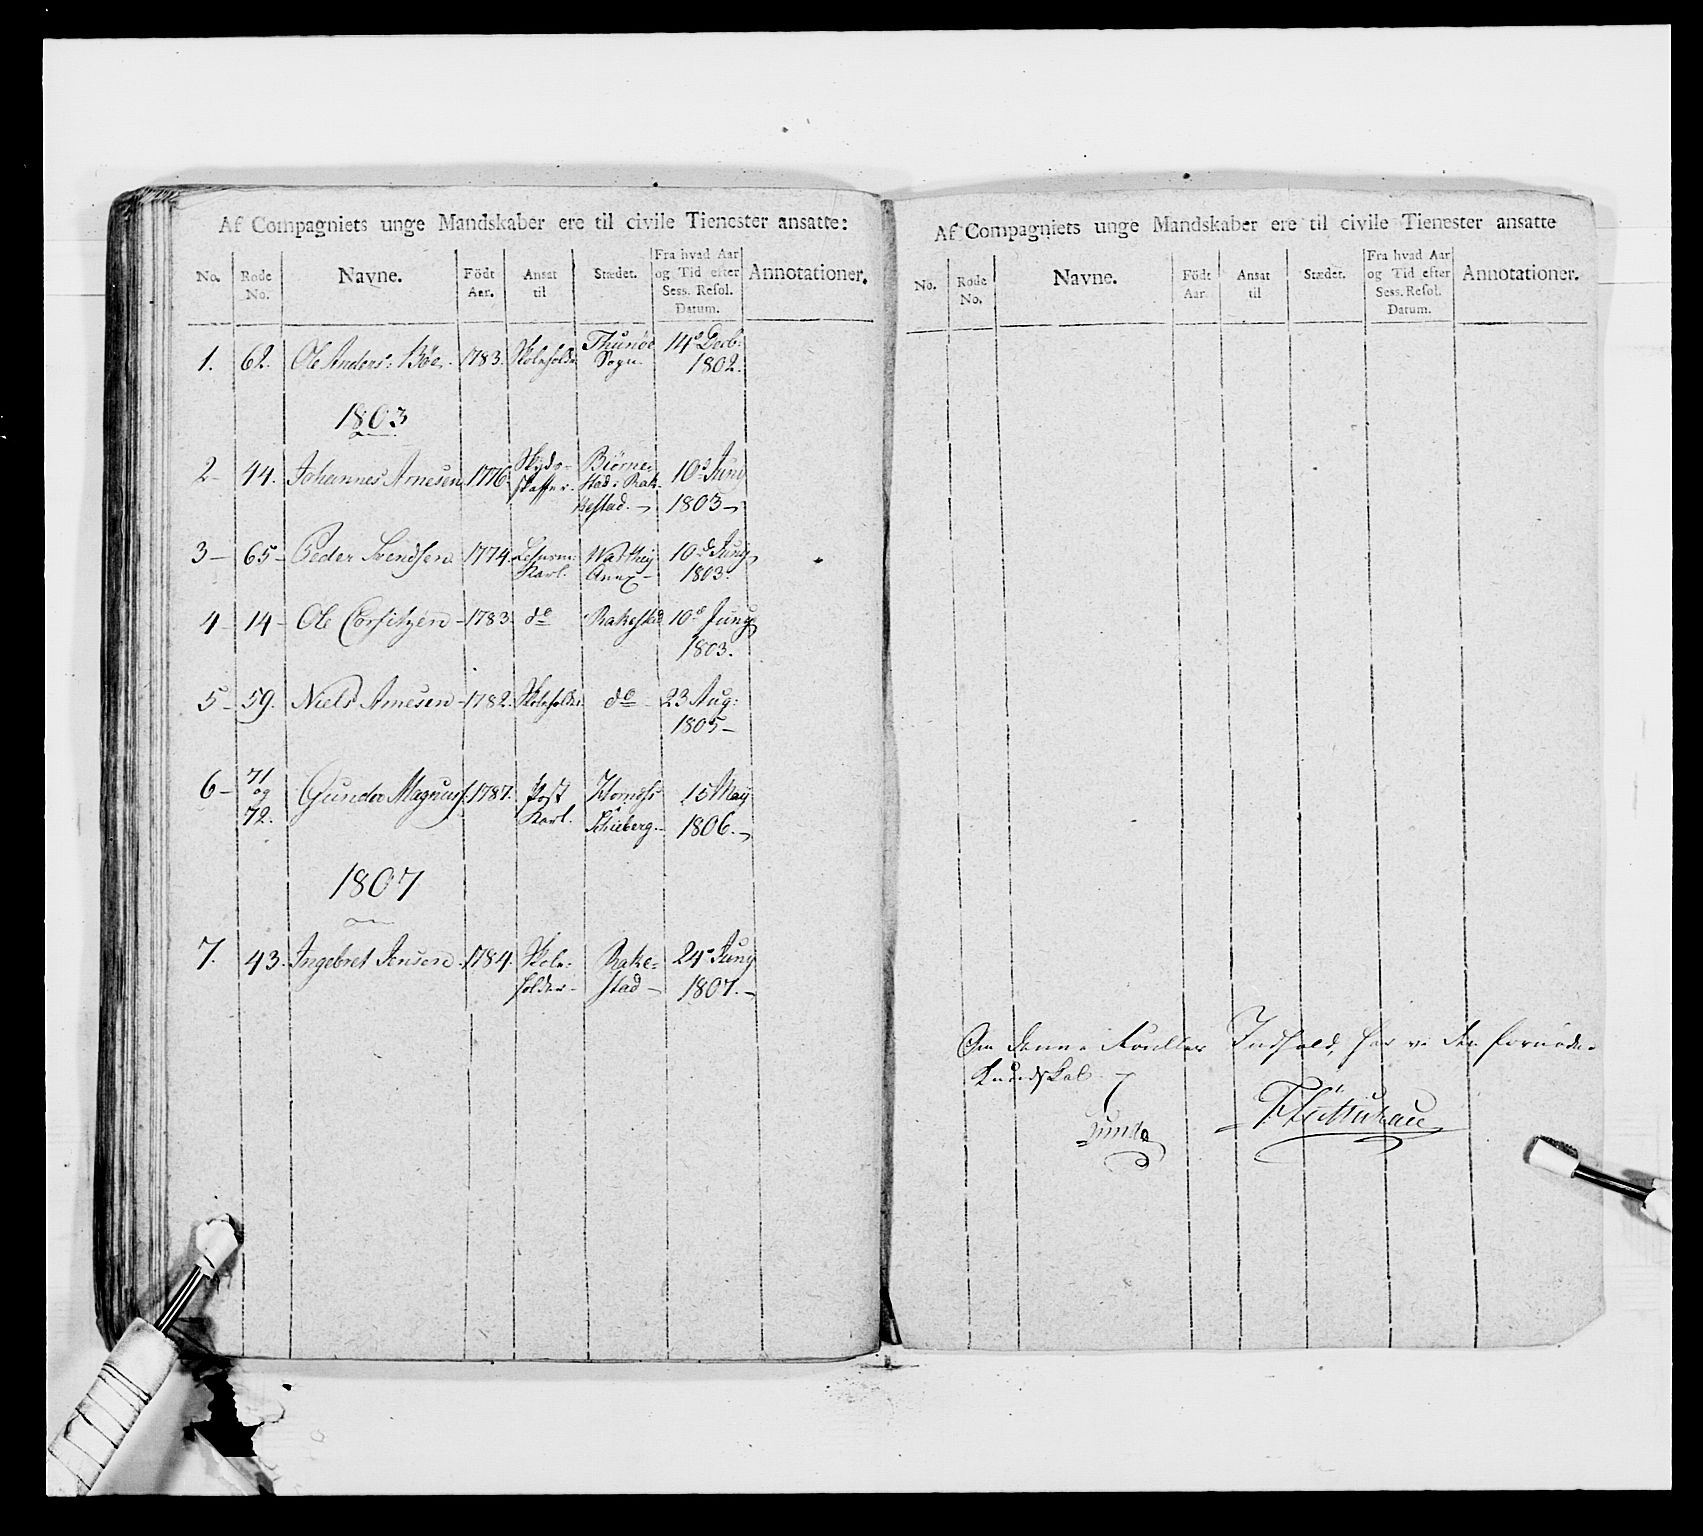 Af Compagniets unge Mandskaber ere til civile Tienester ansatte:
No. Rode No. Navne. Födt Aar. Ansat til Stædet. Fra hvad Aar og Tid efter Sess. Resol. Datum. Annotationer.
1. 62. Ole Anders: Böe. 1783. Skoleholder Thunöe Sogn. 14de Decb: 1802.
1803
2- 44. Johannes Arnesen 1776. Skyds-skaffer. Biörnestad i Rakkestad. 10de Juny 1803-
3- 65- Peder Svendsen 1774. Lehnsm: Karl. Annex- 10de Juny 1803.
4- 14- Ole Corfitzen- 1783. do Rakestad 10de Juny 1803.
5- 59. Niels Arnesen- 1782. Skoleholder do 23 Aug: 1805-
6- 71 og 72. Gunder Magnus: 1787. Post Karl. Schieberg. 15 May 1806.
1807
7. 43. Ingebret Jensen 1784. Skole-holder- Rake-stad- 24de Juny 1807.-
Af Compagniets unge Mandskaber ere til civile Tienester ansatte
No. Rode No. Navne. Födt Aar. Ansat til Stædet. Fra hvad Aar og Tid efter Sess. Resol. Datum. Annotationer.
Om denne Roulles Indhold, har vi den fornödne
Kundskab